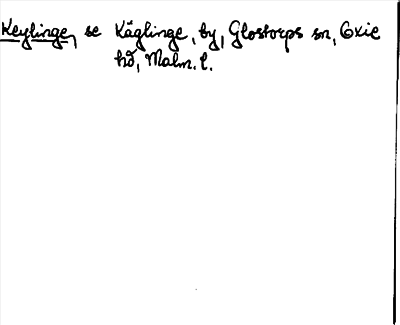 Keylinge, se Käglinge, by, Glostorps sn, Oxie
hd, Malm. l.